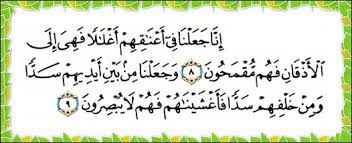 إِنَّا جَعَلْنَا فِىٓ أَعْنَٰقِهِمْ أَغْلَٰلًا فَهِىَ إِلَى
ٱلْأَذْقَانِ فَهُم مُّقْمَحُونَ ٨ وَجَعَلْنَا مِنۢ بَيْنِ أَيْدِيهِمْ سَدًّا
وَمِنْ خَلْفِهِمْ سَدًّا فَأَغْشَيْنَٰهُمْ فَهُمْ لَا يُبْصِرُونَ ٩